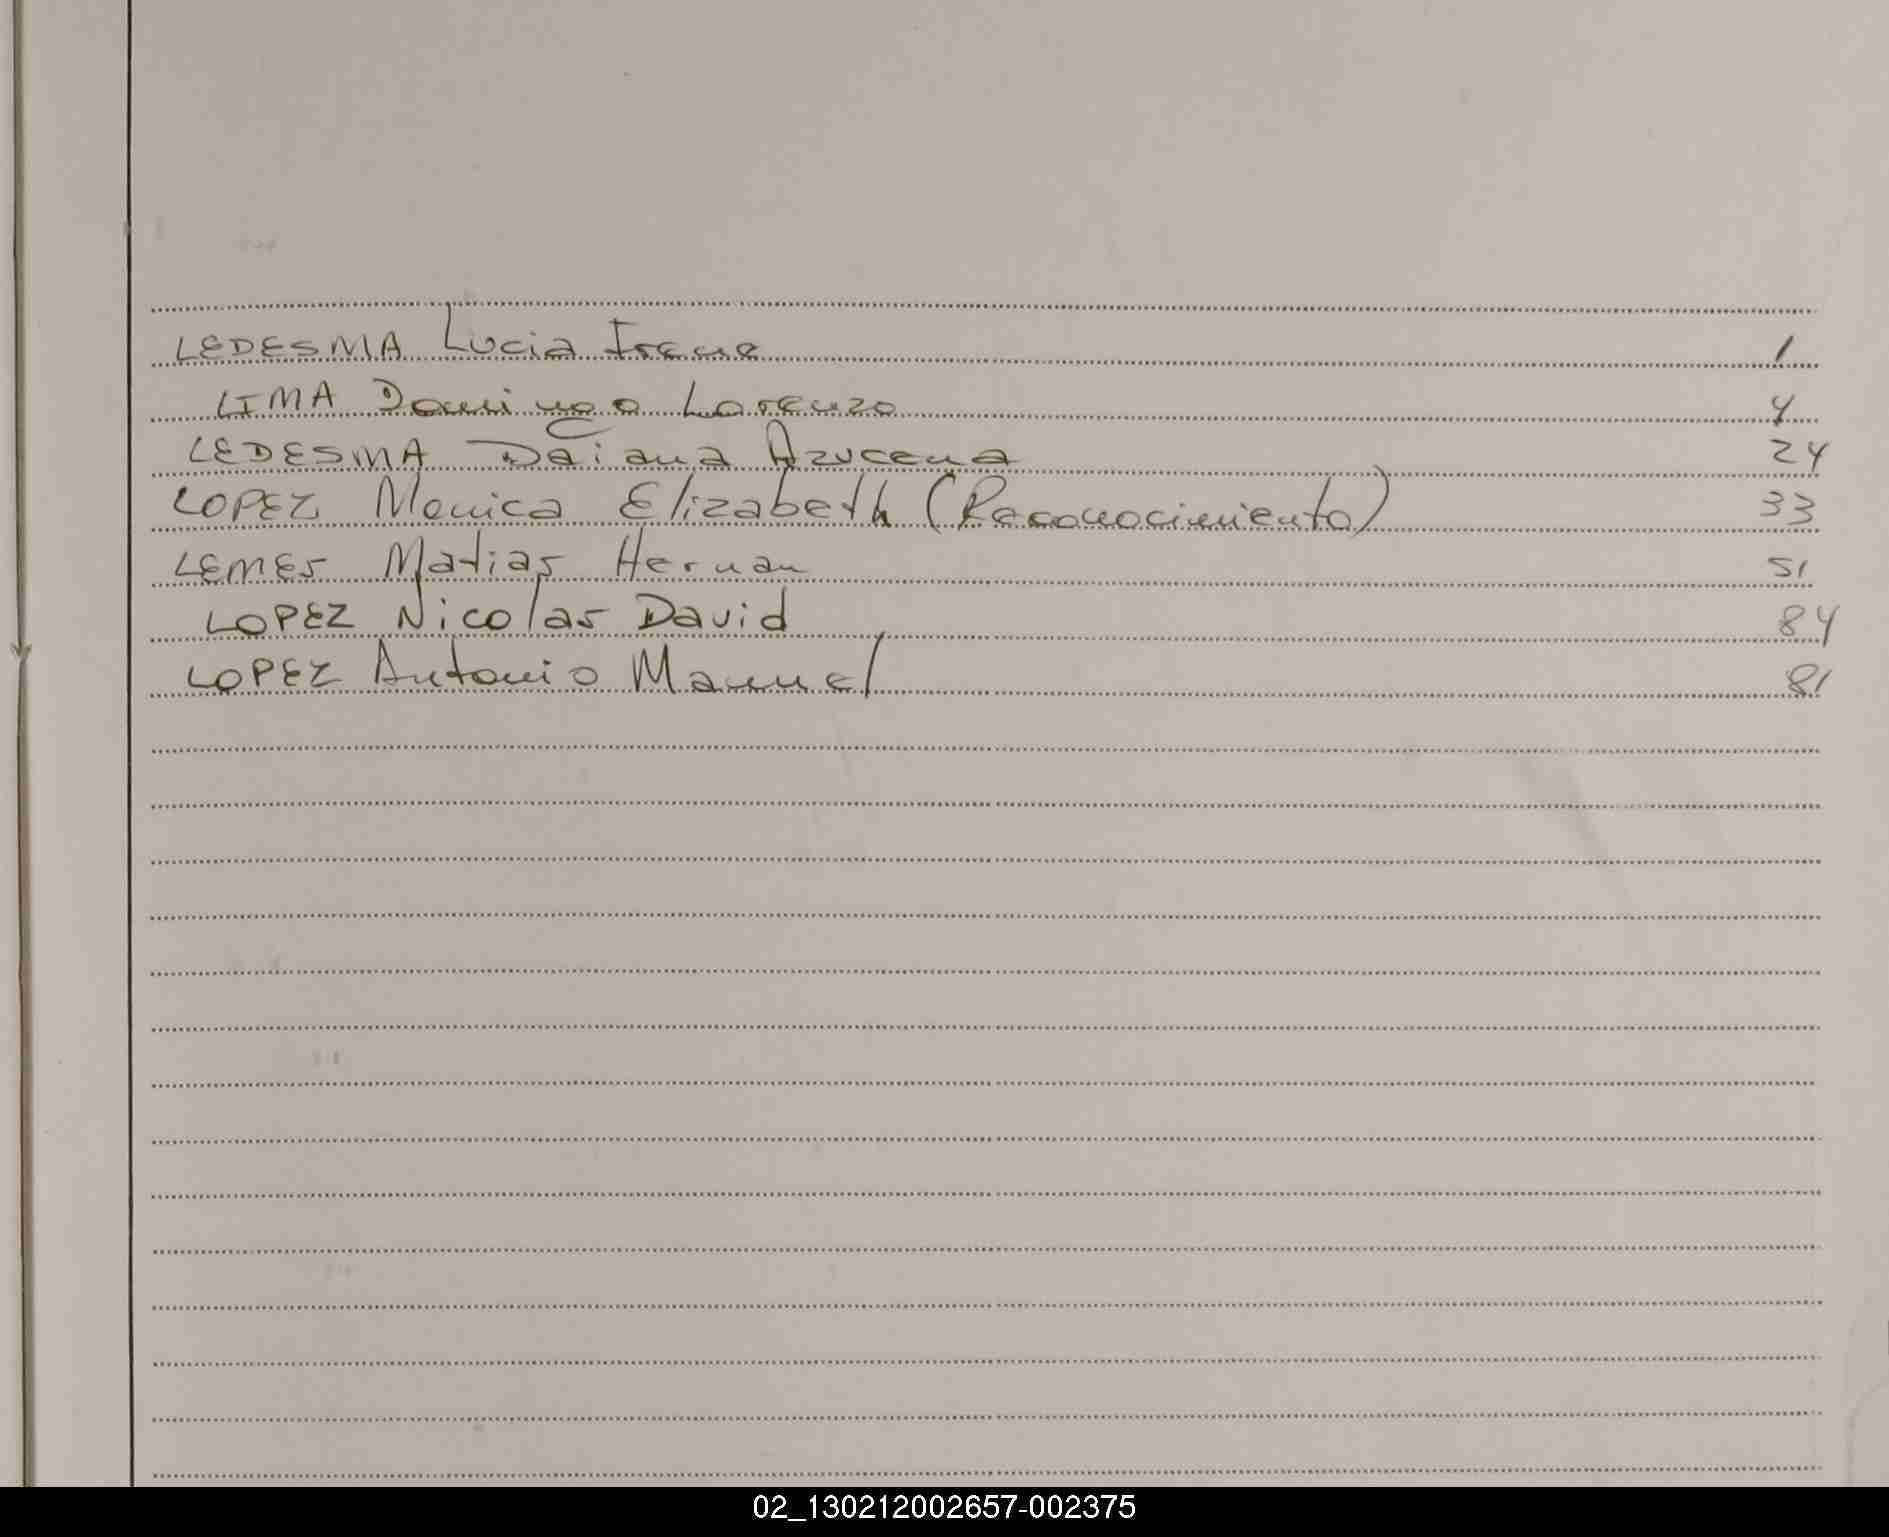 LEDESMA Lucia Irene 1
LIMA Domingo Lorenzo 4
LEDESMA Daiana Azucena 24
LOPEZ Monica Elizabeth (Reconocimiento) 33
LEMES Matias Hernan 51
LOPEZ Nicolas David 84
LOPEZ Antonio Manuel 81
02_130212002657-002375